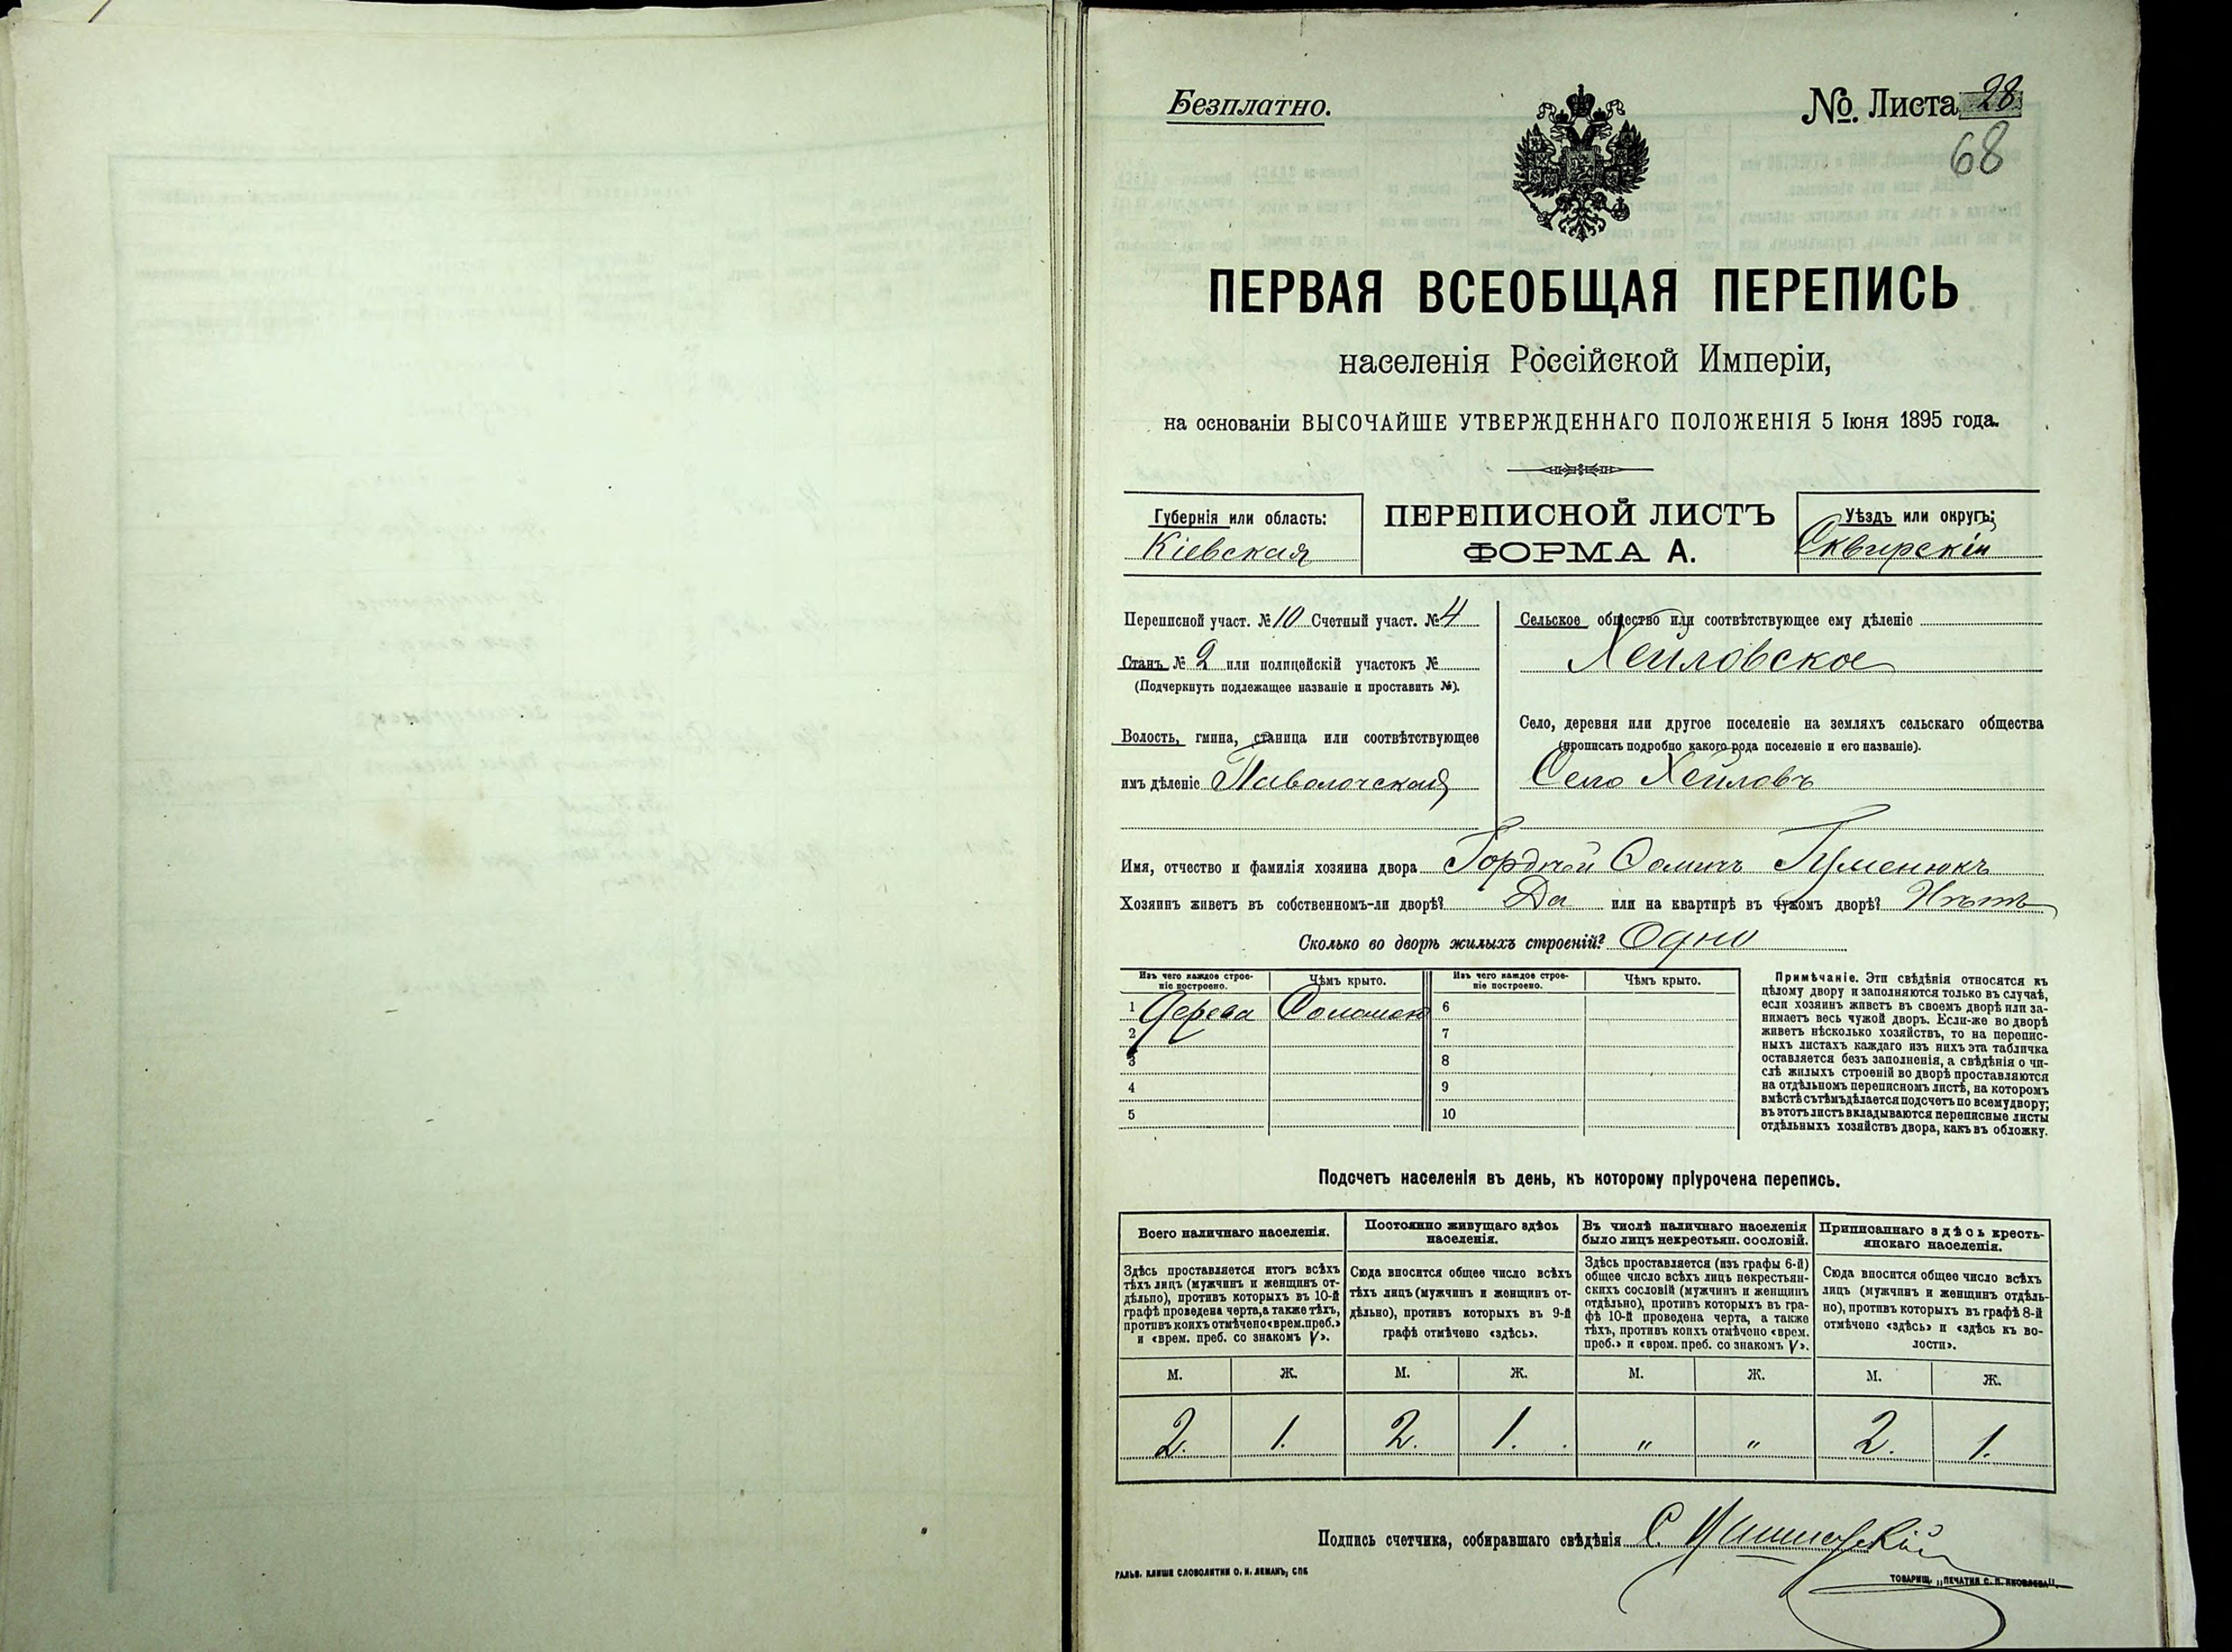 Безплатно.
№. Листа 28
68
ПЕРВАЯ ВСЕОБЩАЯ ПЕРЕПИСЬ
населенія Россійской Имперіи,
на основаніи ВЫСОЧАЙШЕ УТВЕРЖДЕННАГО ПОЛОЖЕНІЯ 5 Іюня 1895 года.
Губернія или область:
Кіевская
ПЕРЕПИСНОЙ ЛИСТЪ
ФОРМА А.
Уѣздъ или округъ:
Сквирскій
Переписной участ. № 10 Счетный участ. № 4
Станъ № 2 или полицейскій участокъ №
(Подчеркнуть подлежащее названіе и проставить №).
Волость, гмина, станица или соотвѣтствующее
имъ дѣленіе Паволочская
Сельское общество или соотвѣтствующее ему дѣленіе
Хейловское
Село, деревня или другое поселеніе на земляхъ сельскаго общества
(прописать подробно какого рода поселеніе и его названіе).
Село Хейловъ
Имя, отчество и фамилія хозяина двора Гордѣй Гуменюкъ
Хозяинъ живетъ въ собственномъ-ли дворѣ? Да или на квартирѣ въ чужомъ дворѣ? Нѣтъ
Сколько во дворѣ жилыхъ строеній? Одно
Изъ чего каждое строе-
ніе построено.
Чѣмъ крыто.
Изъ чего каждое строе-
ніе построено.
Чѣмъ крыто.
1 Дерева Соломою 6
2 7
3 8
4 9
5 10
Примѣчаніе. Эти свѣдѣнія относятся къ
цѣлому двору и заполняются только въ случаѣ,
если хозяинъ живетъ въ своемъ дворѣ или за-
нимаетъ весь чужой дворъ. Если-же во дворѣ
живетъ нѣсколько хозяйствъ, то на перепис-
ныхъ листахъ каждаго изъ нихъ эта табличка
оставляется безъ заполненія, а свѣдѣнія о чи-
слѣ жилыхъ строеній во дворѣ проставляются
на отдѣльномъ переписномъ листѣ, на которомъ
вмѣстѣ съ тѣмъ дѣлается подсчетъ по всему двору;
въ этотъ листъ вкладываются переписные листы
отдѣльныхъ хозяйствъ двора, какъ въ обложку.
Подсчетъ населенія въ день, къ которому пріурочена перепись.
Всего наличнаго населенія.
Здѣсь проставляется итогъ всѣхъ
тѣхъ лицъ (мужчинъ и женщинъ от-
дѣльно), противъ которыхъ въ 10-й
графѣ проведена черта, а также тѣхъ,
противъ коихъ отмѣчено «врем. преб.»
и «врем. преб. со знакомъ V».
Постоянно живущаго здѣсь
населенія.
Сюда вносится общее число всѣхъ
тѣхъ лицъ (мужчинъ и женщинъ от-
дѣльно), противъ которыхъ въ 9-й
графѣ отмѣчено «здѣсь».
Въ числѣ наличнаго населенія
было лицъ некрестьян. сословій.
Здѣсь проставляется (изъ графы 6-й)
общее число всѣхъ лицъ некрестьян-
скихъ сословій (мужчинъ и женщинъ
отдѣльно), противъ которыхъ въ гра-
фѣ 10-й проведена черта, а также
тѣхъ, противъ коихъ отмѣчено «врем.
преб.» и «врем. преб. со знакомъ V».
Приписаннаго здѣсь кресть-
янскаго населенія.
Сюда вносится общее число всѣхъ
лицъ (мужчинъ и женщинъ отдѣль-
но), противъ которыхъ въ графѣ 8-й
отмѣчено «здѣсь» и «здѣсь къ во-
лости».
М. Ж. М. Ж. М. Ж. М. Ж.
2. 1. 2. 1. " " 2. 1.
Подпись счетчика, собиравшаго свѣдѣнія С.
ГАЛЬВ. КЛИШЕ СЛОВОЛИТНИ О. И. ЛЕМАНЪ, СПБ
ТОВАРИЩ. „ПЕЧАТНЯ С. П. ЯКОВЛЕВА".